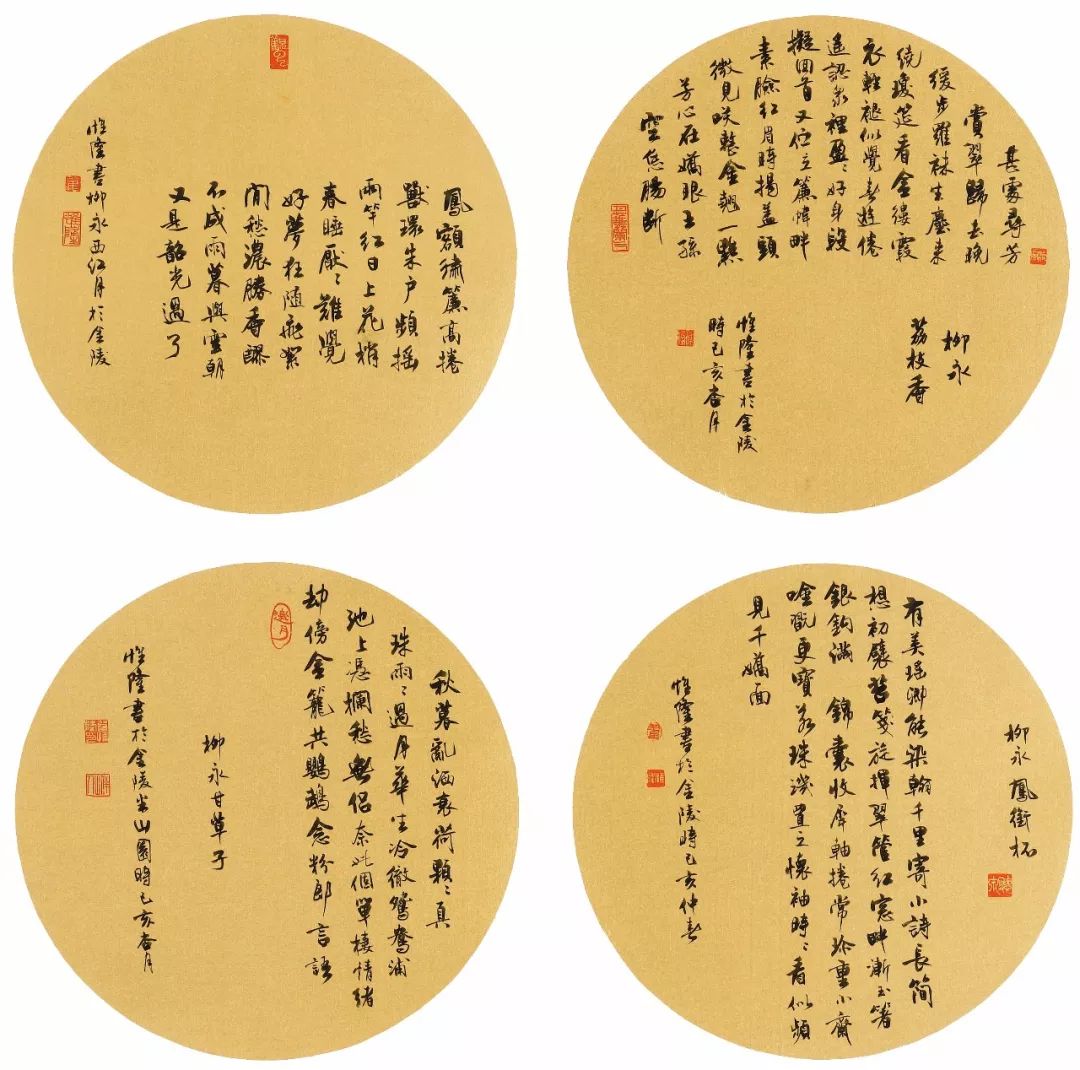 鳳額繡簾高捲
獸環朱户頻摇
兩竿紅日上花梢
春睡厭〻難覺
好夢狂隨飛絮
閒愁濃勝香醪
不成雨暮與雲朝
又是韶光過了
惟隆書柳永西江月於金陵
甚處尋芳
賞翠歸去晚
緩步羅襪生塵來
繞瓊筵看金縷霞
衣輕褪似覺春遊倦
遥認衆裡盈〻好身段
擬回首又佇立簾幃畔
素臉紅眉時揭蓋頭
微見咲整金翹一點
芳心在嬌眼王孫
空恁腸斷
柳永
荔枝香
惟隆書於金陵
時己亥杏月
秋暮亂洒衰荷顆〻真
珠雨〻過月華生冷徹鴛鴦浦
池上憑欄愁無侣奈此個單棲情緒
却傍金籠共鸚鵡念粉郎言語
柳永甘草子
惟隆書於金陵半山園時己亥杏月
柳永鳳銜杯
有美瑶卿能染翰千里寄小詩長簡
想初襞苔箋旋揮翠管紅窓畔漸玉箸
銀鈎滿 錦囊收犀軸捲常珍重小齋
吟翫更寶若珠璣置之懷袖時〻看似頻
見千嬌面
惟隆書於金陵時己亥仲春